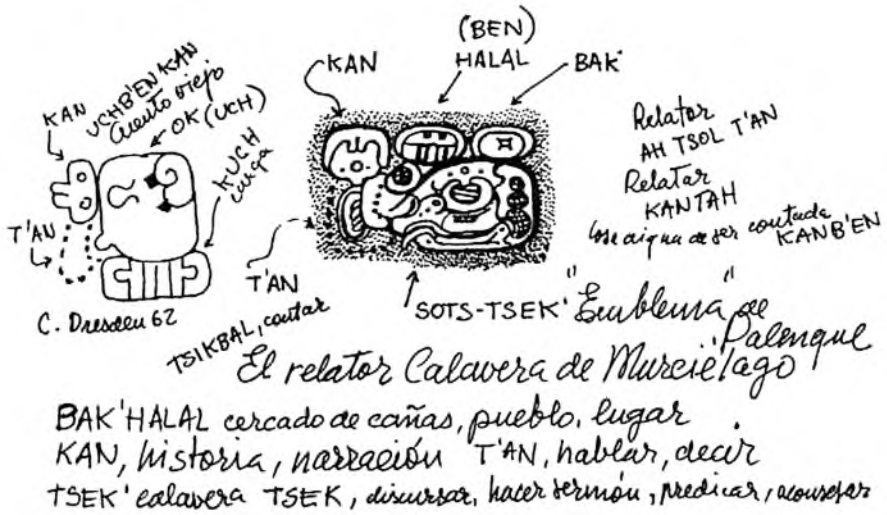 KAN
UCHB'EN KAN
Cuento viejo
OK (UCH)
KUCH
carga
T'AN
C. Dresden 62
KAN
(BEN)
HALAL
BAK'
T'AN
TSIKBAL, contar
SOTS-TSEK' "Emblema" de
Palenque
Relator
AH TSOL T'AN
Relatar
KANTAH
Cosa digna de ser contada
KANB'EN
El relator Calavera de Murciélago
BAK'HALAL cercado de cañas, pueblo, lugar
KAN, historia, narración T'AN, hablar, decir
TSEK' calavera TSEK, discursar, hacer sermón, predicar, aconsejar